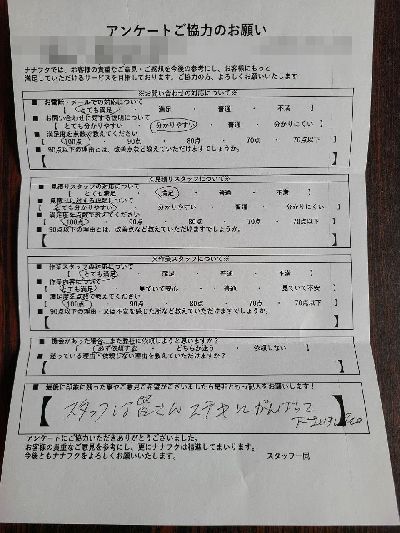 アンケートご協力のお願い
ナナフクでは、お客様の貴重なご意見・ご感想を今後の参考にし、お客様にもっと
満足していただけるサービスを目指しております。ご協力の方、よろしくお願いいたします
※お問い合わせの対応について※
■ お電話・メールでの対応について
【 とても満足 ・ 満足 ・ 普通 ・ 不満 】
■ お問い合わせに対する説明について
【 とても分かりやすい ・ 分かりやすい ・ 普通 ・ 分かりにくい 】
■ 満足度を点数で教えてください
【 100点 ・ 90点 ・ 80点 ・ 70点 ・ 70点以下 】
■ 90点以下の理由とは、改善点など教えていただけますでしょうか。
【 】
※見積りスタッフについて※
■ 見積りスタッフの対応について
【 とても満足 ・ 満足 ・ 普通 ・ 不満 】
■ 見積りに対する説明について
【 とても分かりやすい ・ 分かりやすい ・ 普通 ・ 分かりにくい 】
■ 満足度を点数で教えてください
【 100点 ・ 90点 ・ 80点 ・ 70点 ・ 70点以下 】
■ 90点以下の理由とは、改善点など教えていただけますでしょうか。
【 】
※作業スタッフについて※
■ 作業スタッフの対応について
【 とても満足 ・ 満足 ・ 普通 ・ 不満 】
■ 作業内容について
【 とても満足 ・ 見ていて安心 ・ 普通 ・ 見ていて不安 】
■ 満足度を点数で教えてください
【 100点 ・ 90点 ・ 80点 ・ 70点 ・ 70点以下 】
■ 90点以下の理由・又は不満に感じた所など教えていただけますでしょうか。
【 】
■ 機会があった場合、また弊社に依頼しようと思いますか？
【 必ず依頼する ・ どちらか迷う ・ 依頼しない 】
■ 迷っている理由・依頼しない理由を教えていただけますか？
【 】
■ 最後に印象に残った事やご意見ご希望がございましたら是非とも一言記入をお願いします！
【 スタッフは皆さん ステキに がんばって
】
アンケートにご協力いただきありがとうございました。
お客様の貴重なご意見を参考にし、更にナナフクは精進してまいります。
今後ともナナフクをよろしくお願いいたします。 スタッフ一同